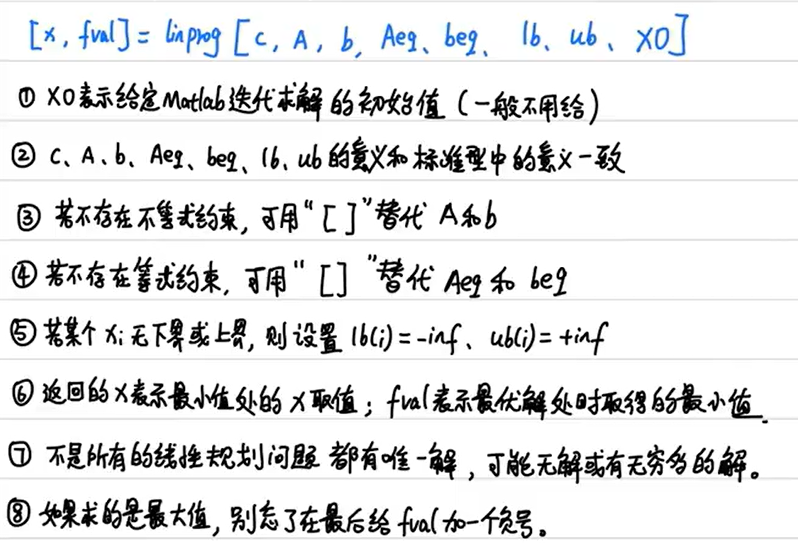 [x, fval] = linprog [c, A, b, Aeq、beq、lb、ub、X0]
① X0表示给定Matlab迭代求解的初始值（一般不用给）
② c、A、b、Aeq、beq、lb、ub的意义和标准型中的意义一致
③ 若不存在不等式约束，可用“[ ]”替代 A和b
④ 若不存在等式约束，可用“[ ]”替代 Aeq 和 beq
⑤ 若某个 xi 无下界或上界，则设置 lb(i)=-inf、ub(i)=+inf
⑥ 返回的x表示最小值处的x取值；fval表示最优解处时取得的最小值.
⑦ 不是所有的线性规划问题都有唯一解，可能无解或有无穷多的解。
⑧ 如果求的是最大值，别忘了在最后给fval加一个负号。